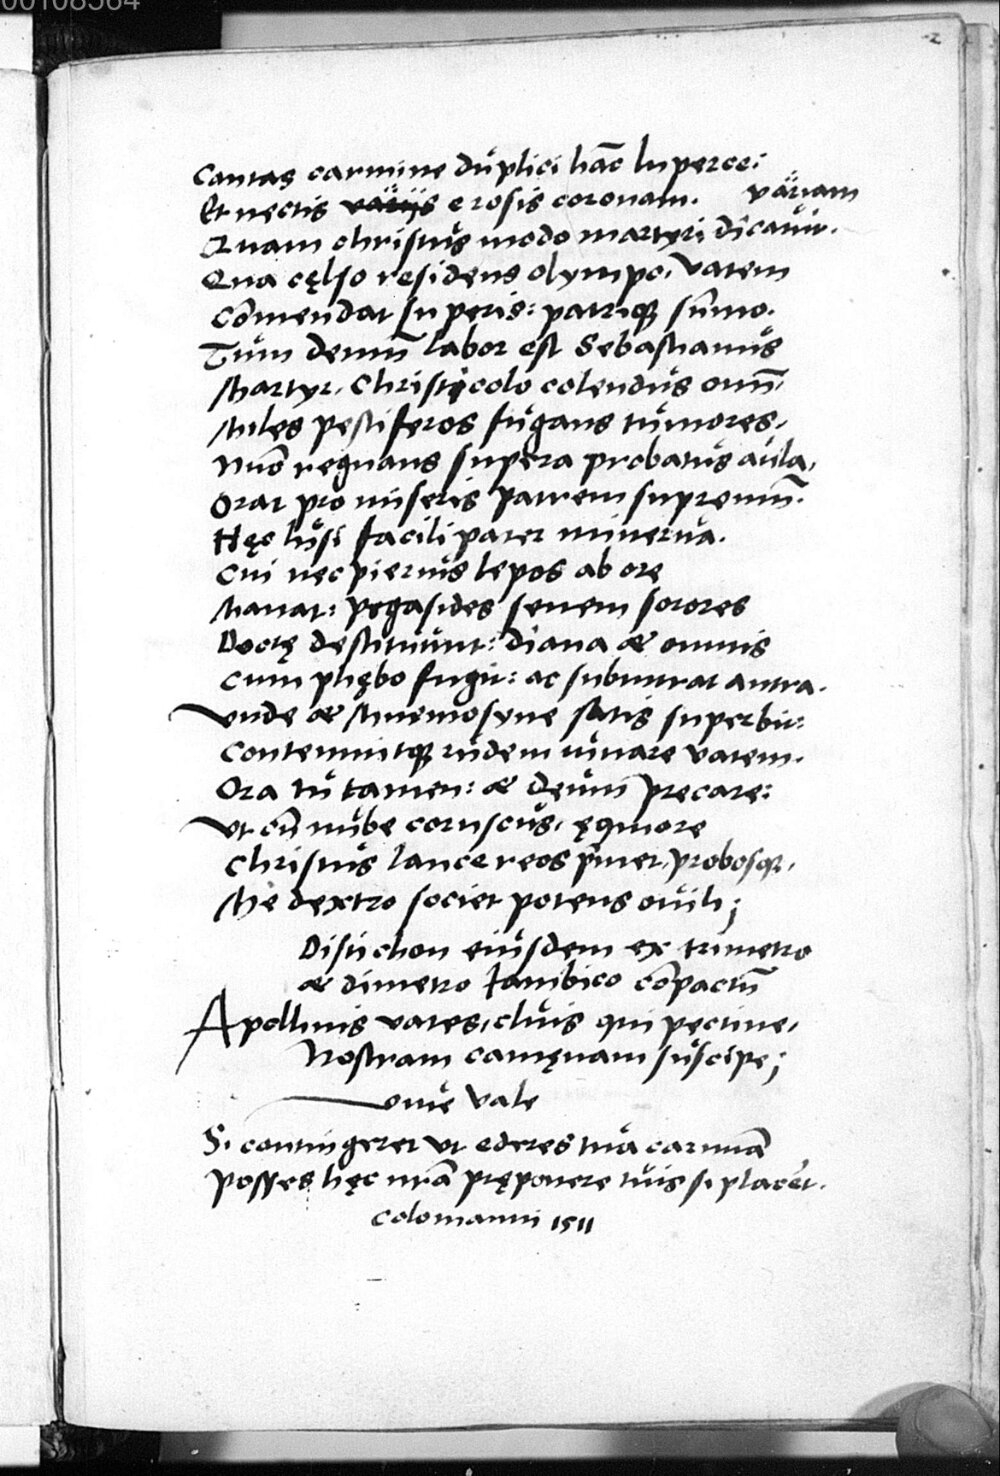 00108564
2
Cantas carmine duplici hāc luperce:
Et nectis varijs e rosis coronam. variam
Quam christus modo martyri dicauit.
Qua cęlso residens olympo, vatem
Cōmendat superis: patriqȝ sūmo.
Tum demū labor est Sebastianus
Martyr, Christicolo colendus omī,
Miles pestiferos fugans tumores,
Nūc regnans supera probatus aula,
Orat pro miseris patrem supremū.
Hęc lusi facili parer minerua.
Cui nec pierius lepos ab ore
Manat: pegasides senem sorores
Doctę destituunt: diana & omnis
Cum phębo fugit: ac subintrat antra.
Vnde & Mnemosyne satis superbit:
Contemnitqȝ rudem iuuare vatem.
Ora tu tamen: & deum precare:
Vt cū nube coruscus, ęquiore
Christus lance reos premet, probosqȝ,
Me dextro societ potens ouili;
Distichon eiusdem ex trimetro
& dimetro Iambico cōpactū
Apollinis vates, cluis qui pectine,
Nostram camęnam suscipe;
Viue Vale
Si contingeret vt ederes tua carmīa
Posses hęc nrā pręponere tuis si placet.
Colomanni 1511